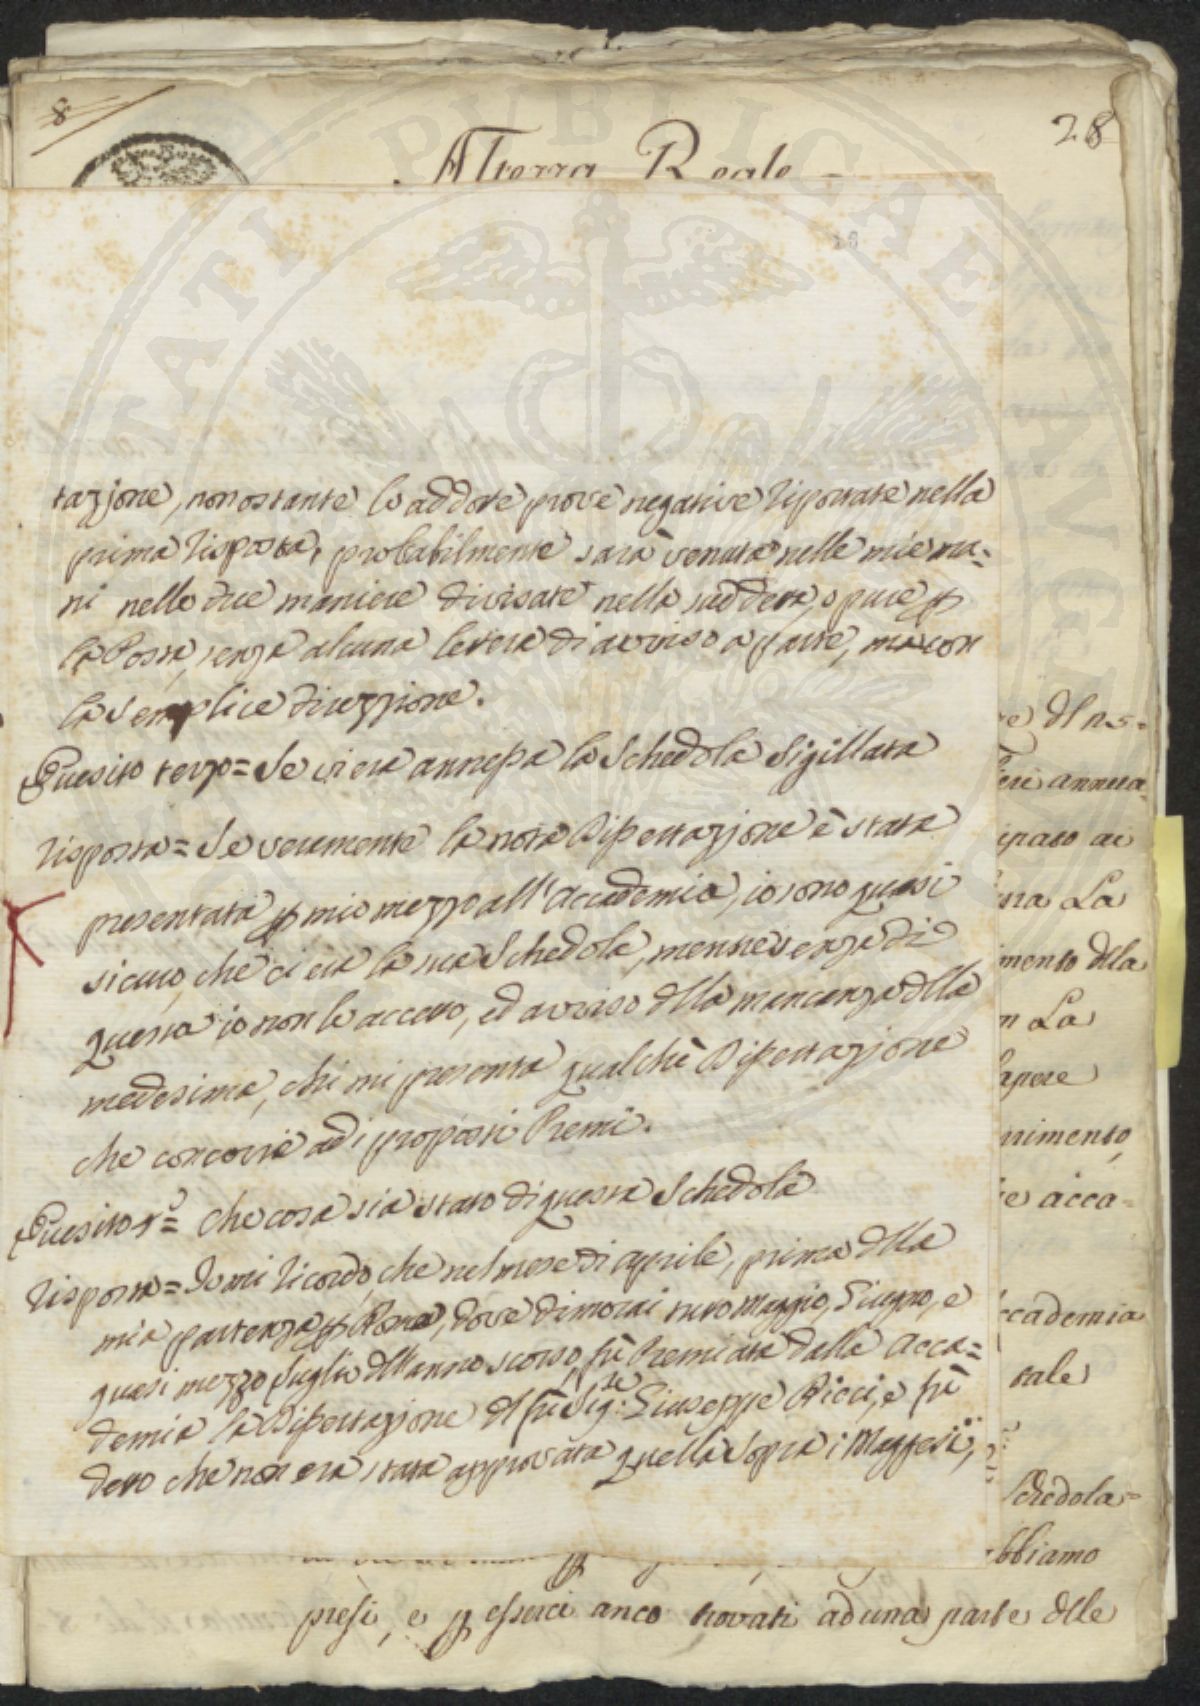 8
28
Altezza Reale
18
tazione, nonostante le addotte prove negative riportate nella
prima risposta, probabilmente sarà venuta nelle mie ma=
ni nelle due maniere divisate nella suddetta, o pure p
la Posta, senza alcuna lettera di avviso a parte, ma con
la semplice direzzione.
Quesito terzo = Se vi era annessa la Schedola Sigillata
Risposta = Se veramente la nota Dissertazione è stata
presentata p mio mezzo all'Accademia, io sono quasi
sicuro, che ci era la sua Schedola, mentre senza di
questa io non le accetto, ed avviso dlla mancanza dlla
medesima, chi mi presenta qualche Dissertazione
che concorre ad i proposti Premi.
Quesito 4º = che cosa sia stato di questa Schedola
Risposta = Io mi ricordo, che nel mese di aprile, prima dlla
mia partenza p Roma, dove dimorai tutto Maggio, Giugno, e
quasi mezzo Luglio dll'anno scorso, fù Premiata dalla Acca=
demia la Dissertazione dl fù Sig:re Giuseppe Ricci, e fù
detto che non era stata approvata quella sopra i Maggesi,
e dl ns=
eri annua=
ipato ai
La
mento dlla
n La
apere
nimento,
e acca=
ccademia
tale
Schedola=
bbiamo
presi, e p esserci anco trovati ad una parte dlle